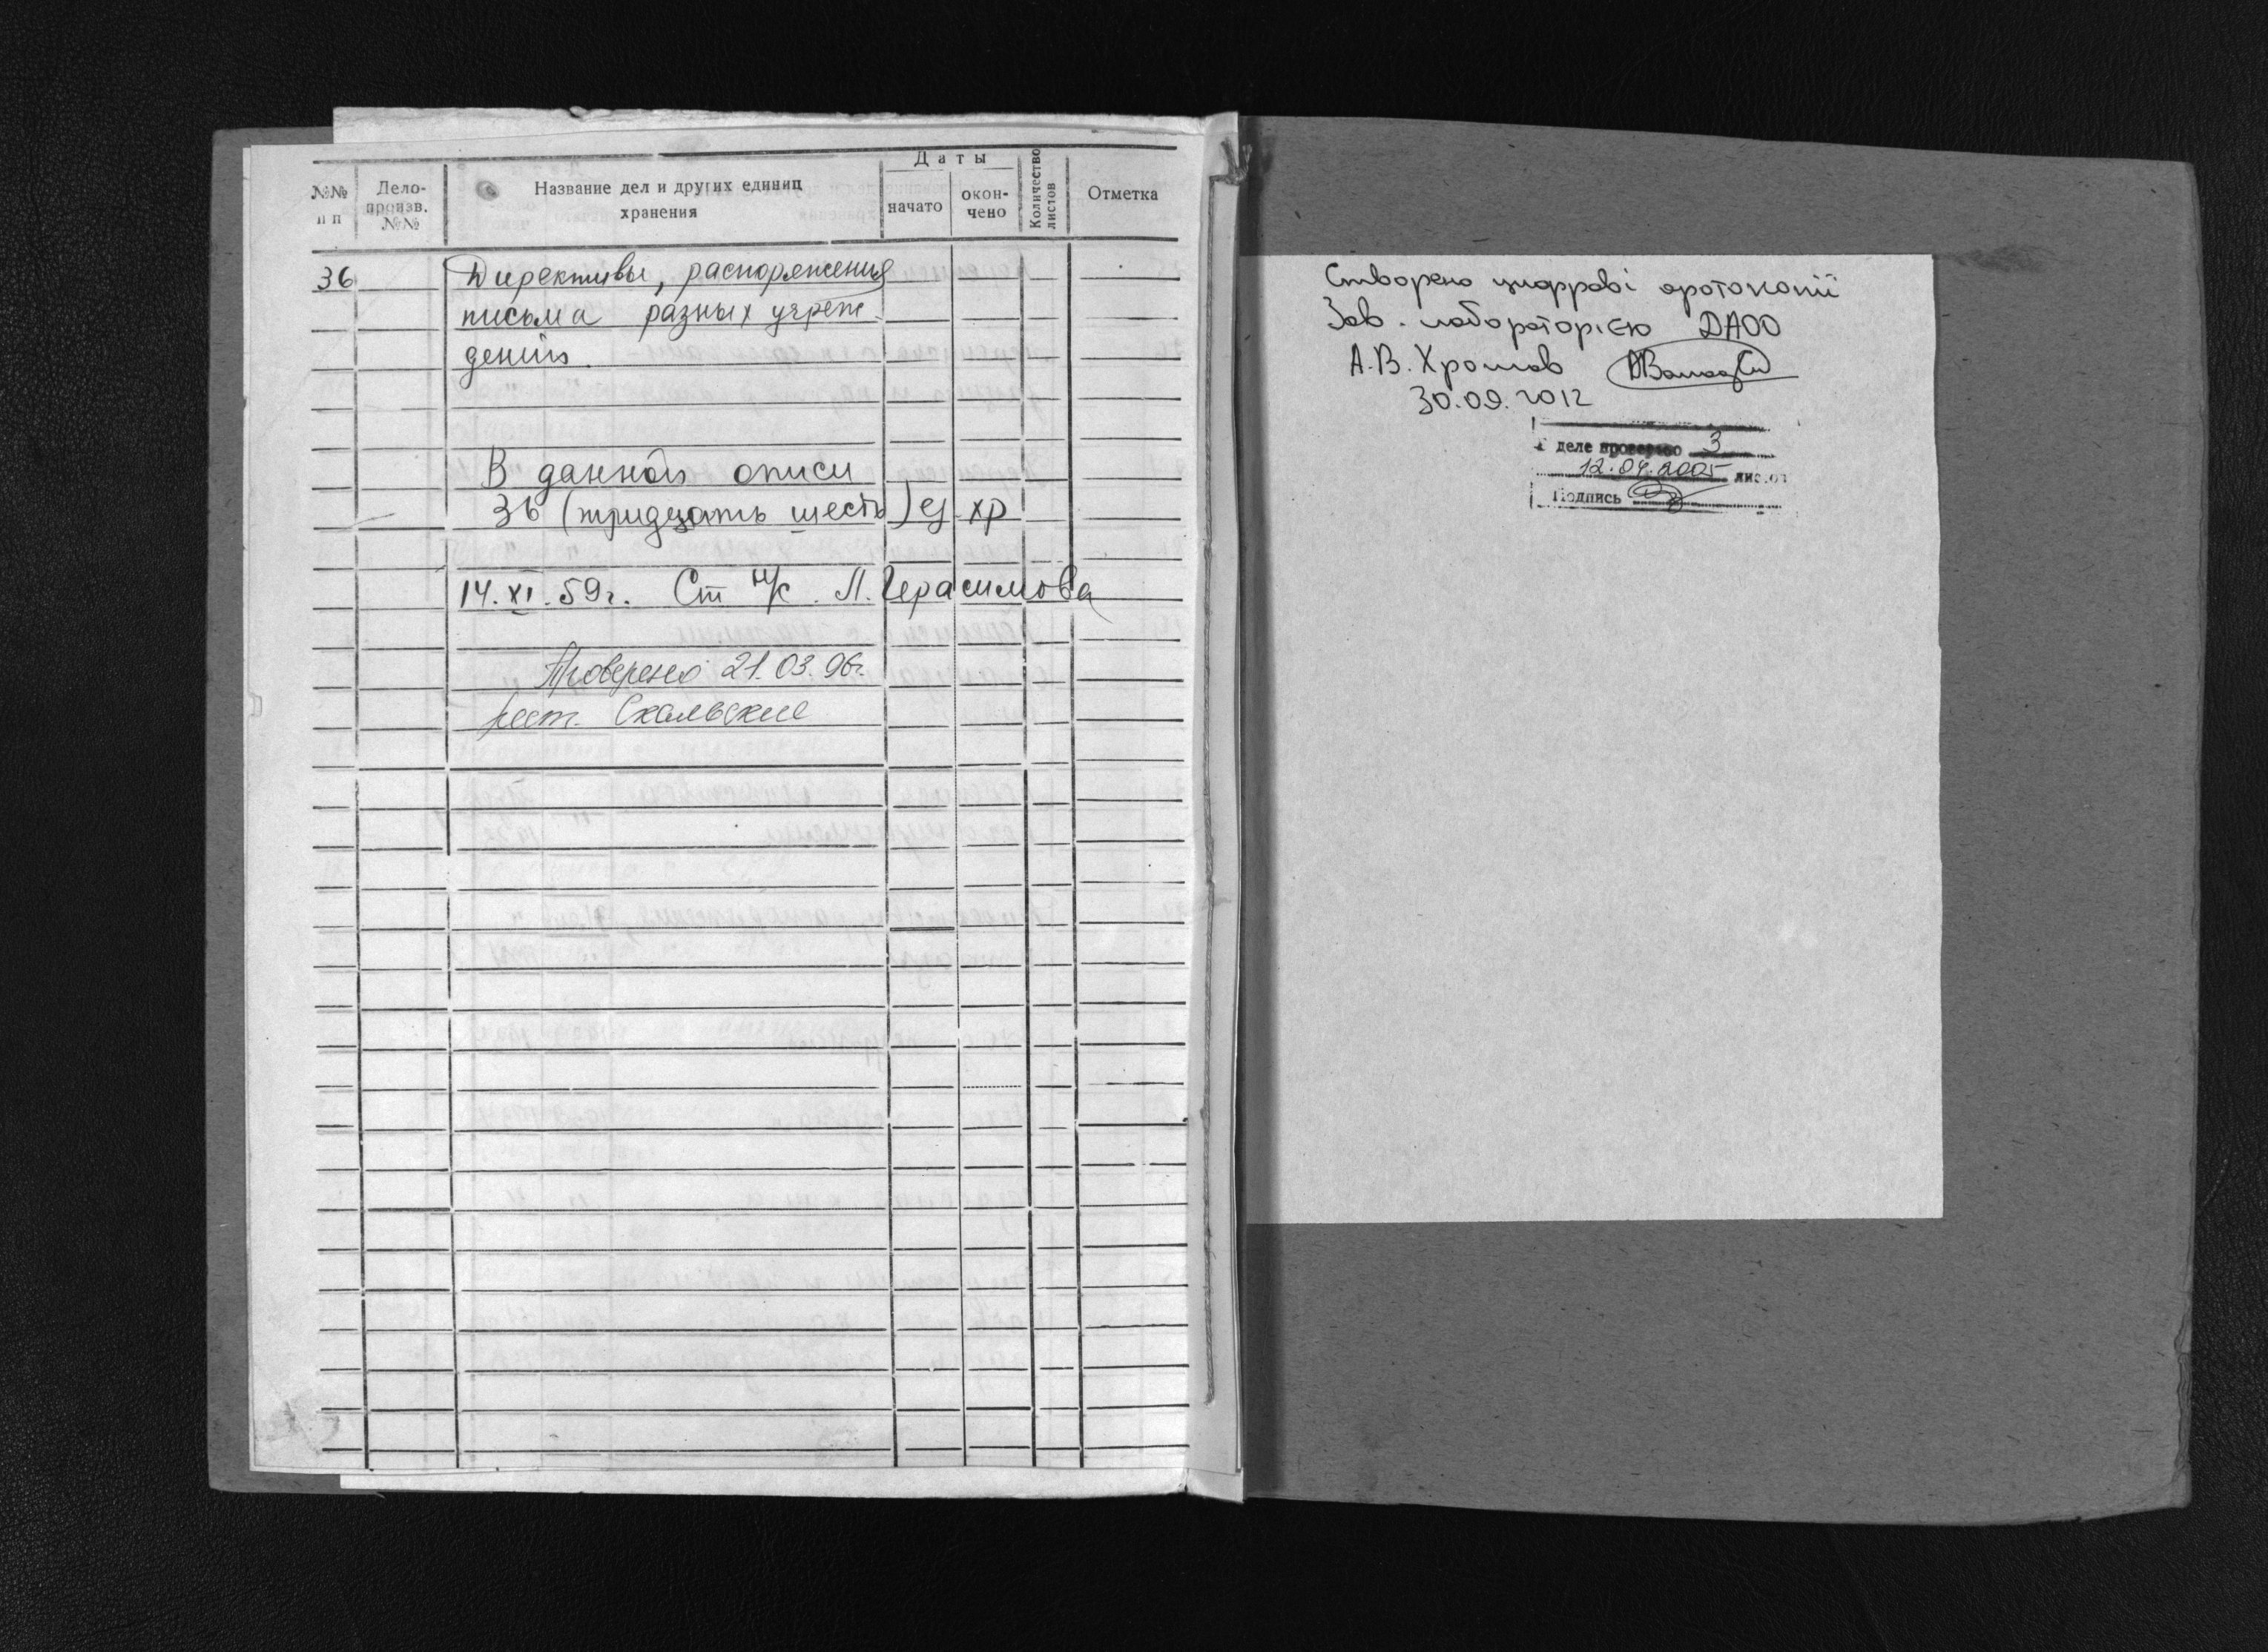 №№ п п
Дело-
произв.
№№
Название дел и других единиц
хранения
Даты
начато
окон-
чено
Количество
листов
Отметка
36
Директивы, распоряжения
письма разных учреж-
дений.
В данной описи
36 (тридцать шесть) ед. хр
14.XI.59г. Ст н/с. Л. Герасимова
Проверено 21.03.96г.
Скальские
Створено цифрові фотокопії
Зав. лабораторією ДАОО
А.В. Хромов
30.09.2012
деле проверено 3
12.04.2005 листов
Подпись